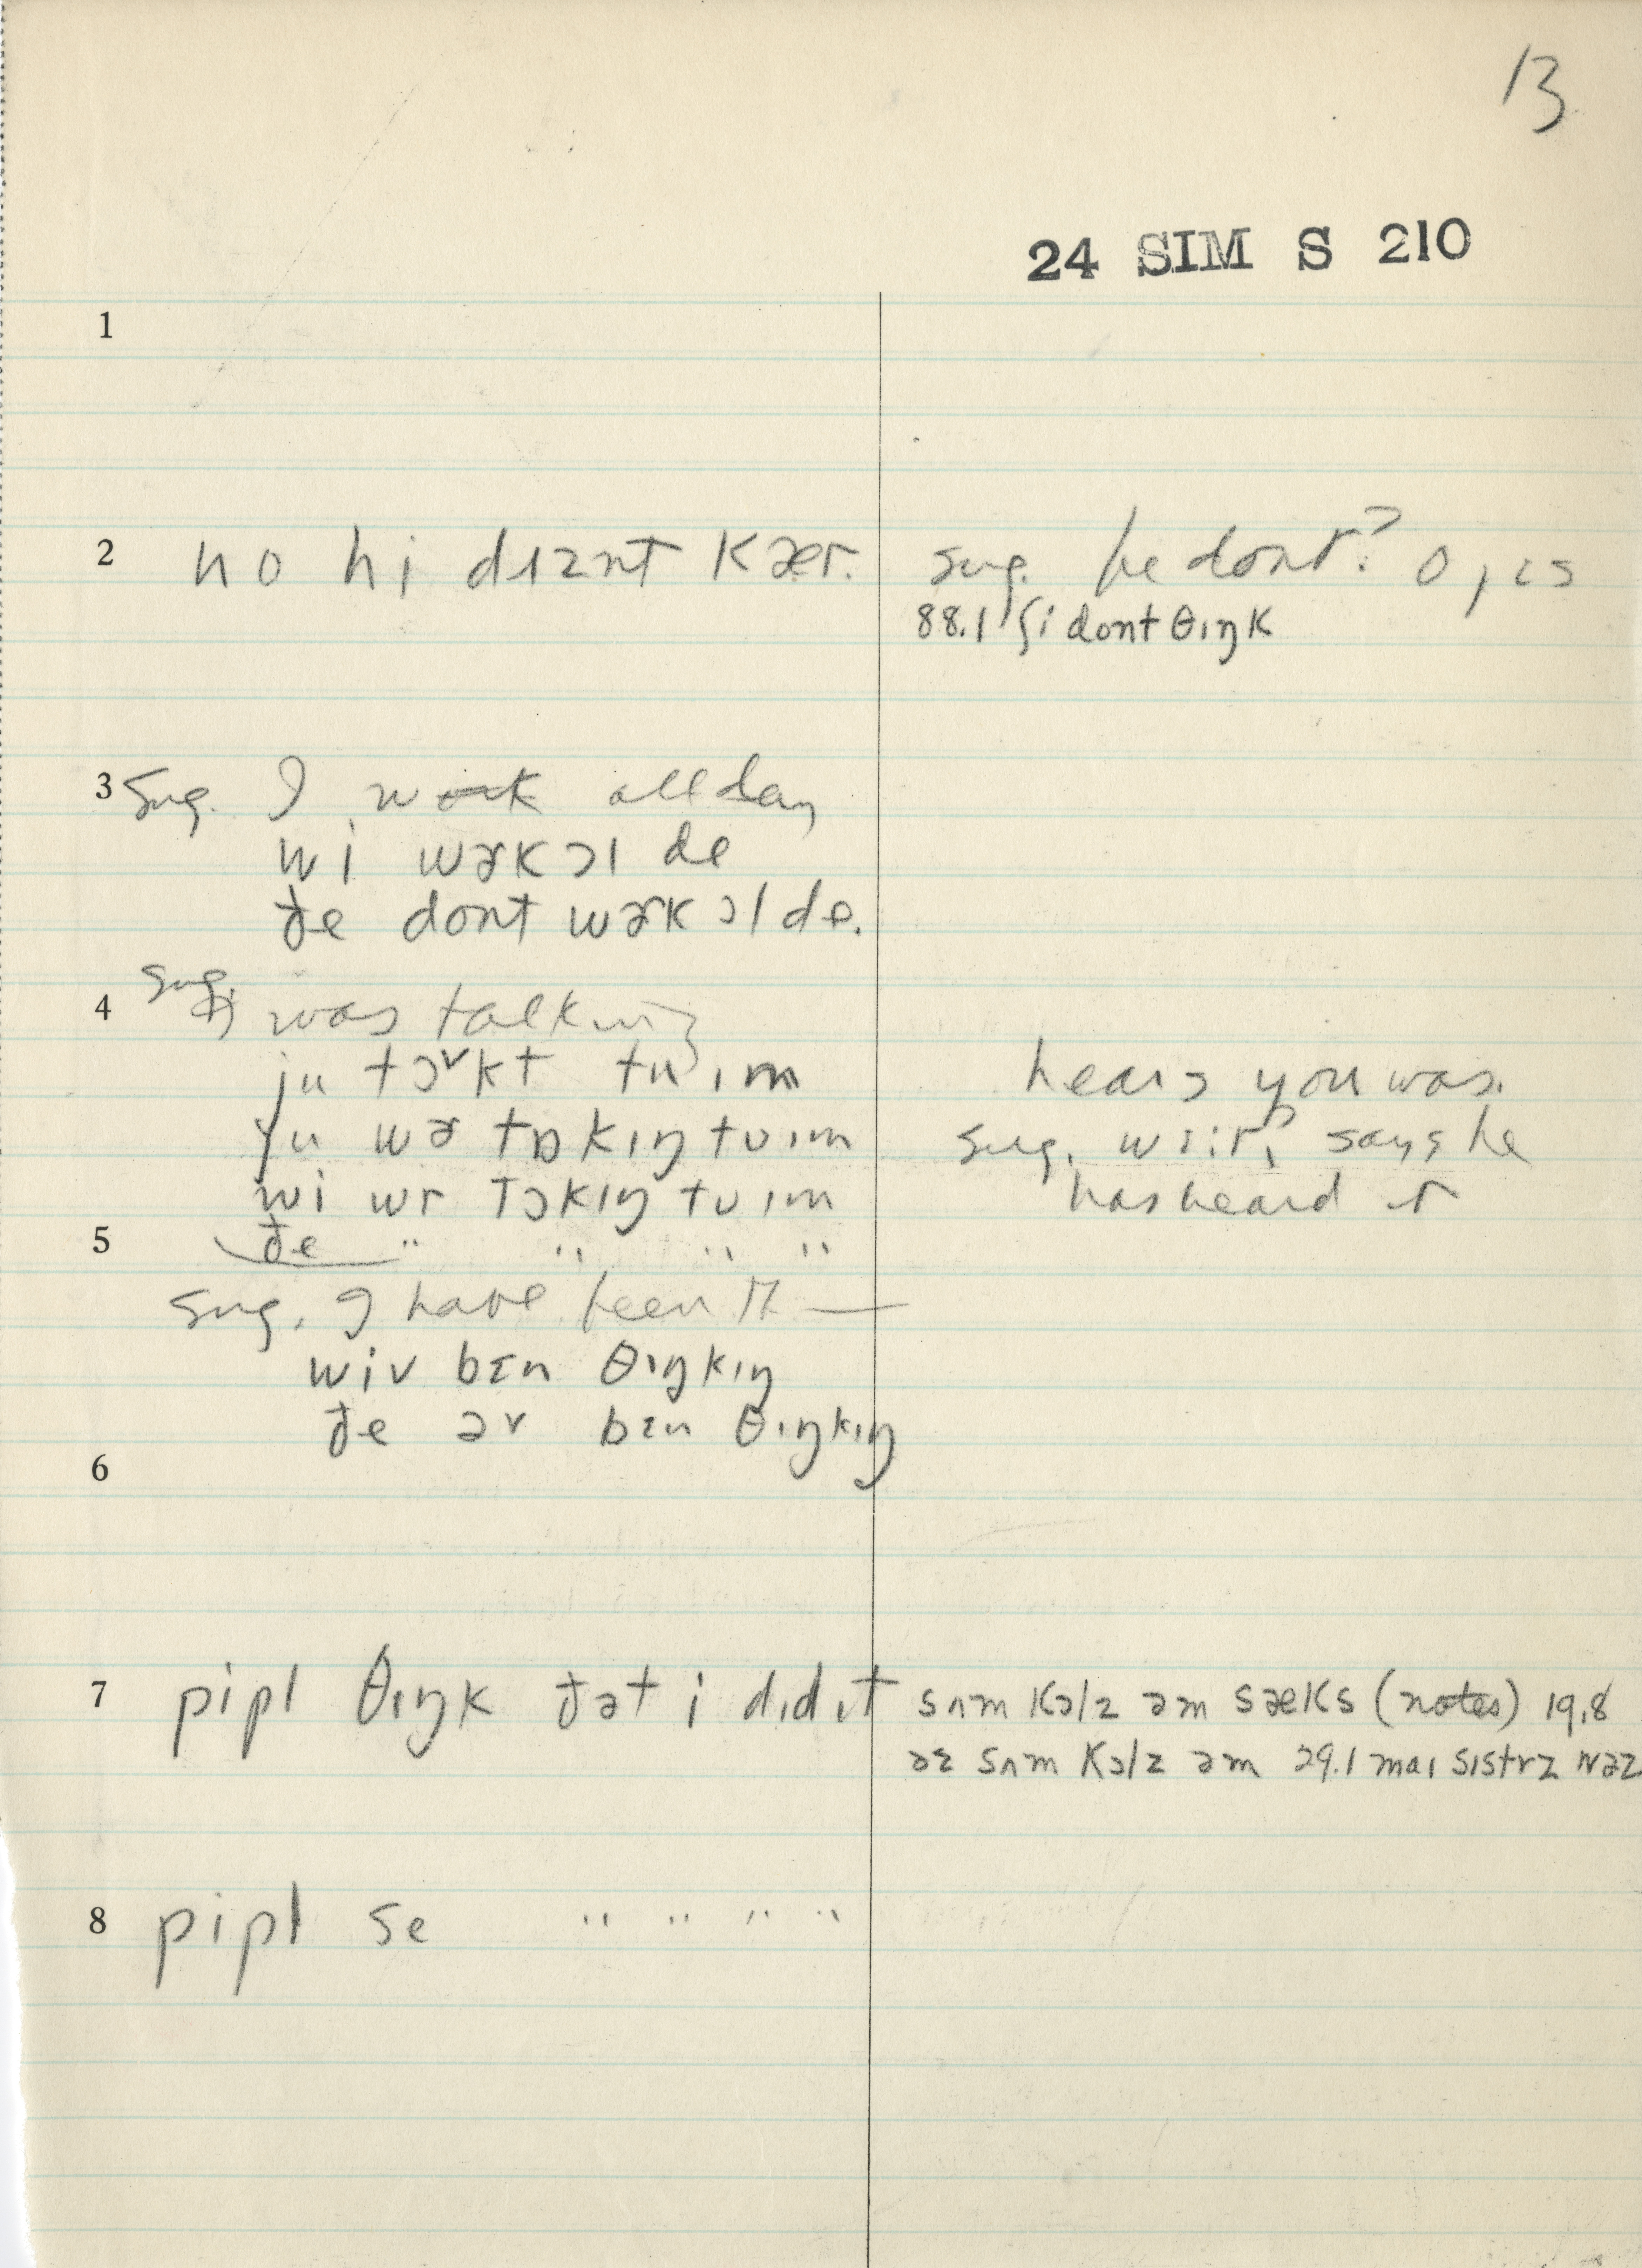 13
24 SIM S 210
1
2 no hi dɪznt kær. sug. he dont? o, ɪs
88.1 ʃi dont θɪŋk
3 sug. I work all day
wi wɚk ɔl de
ðe dont wɚk ɔl de.
4 sug. I was talking
ju tɔ˅kt tu ɪm hears you was.
ju wɚ tɒkɪŋ tʊ ɪm sug. says he
wi wr tɔkɪŋ tʊ ɪm has heard it
5 ðe " " " "
sug. I have been th —
wiv bɪn θɪŋkɪŋ
ðe əv bɪn θɪŋkɪŋ
6
7 pipl θɪŋk ðət i dɪd ɪt sʌm kɔlz əm sæks (notes) 19.8
əz sʌm kɔlz əm 29.1 maɪ sɪstrz wəz
8 pipl se " " " "